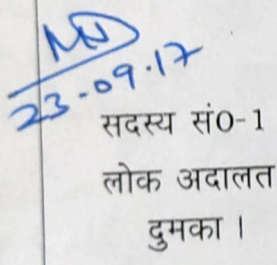 23-09-17
सदस्य सं0-1
लोक अदालत
दुमका ।